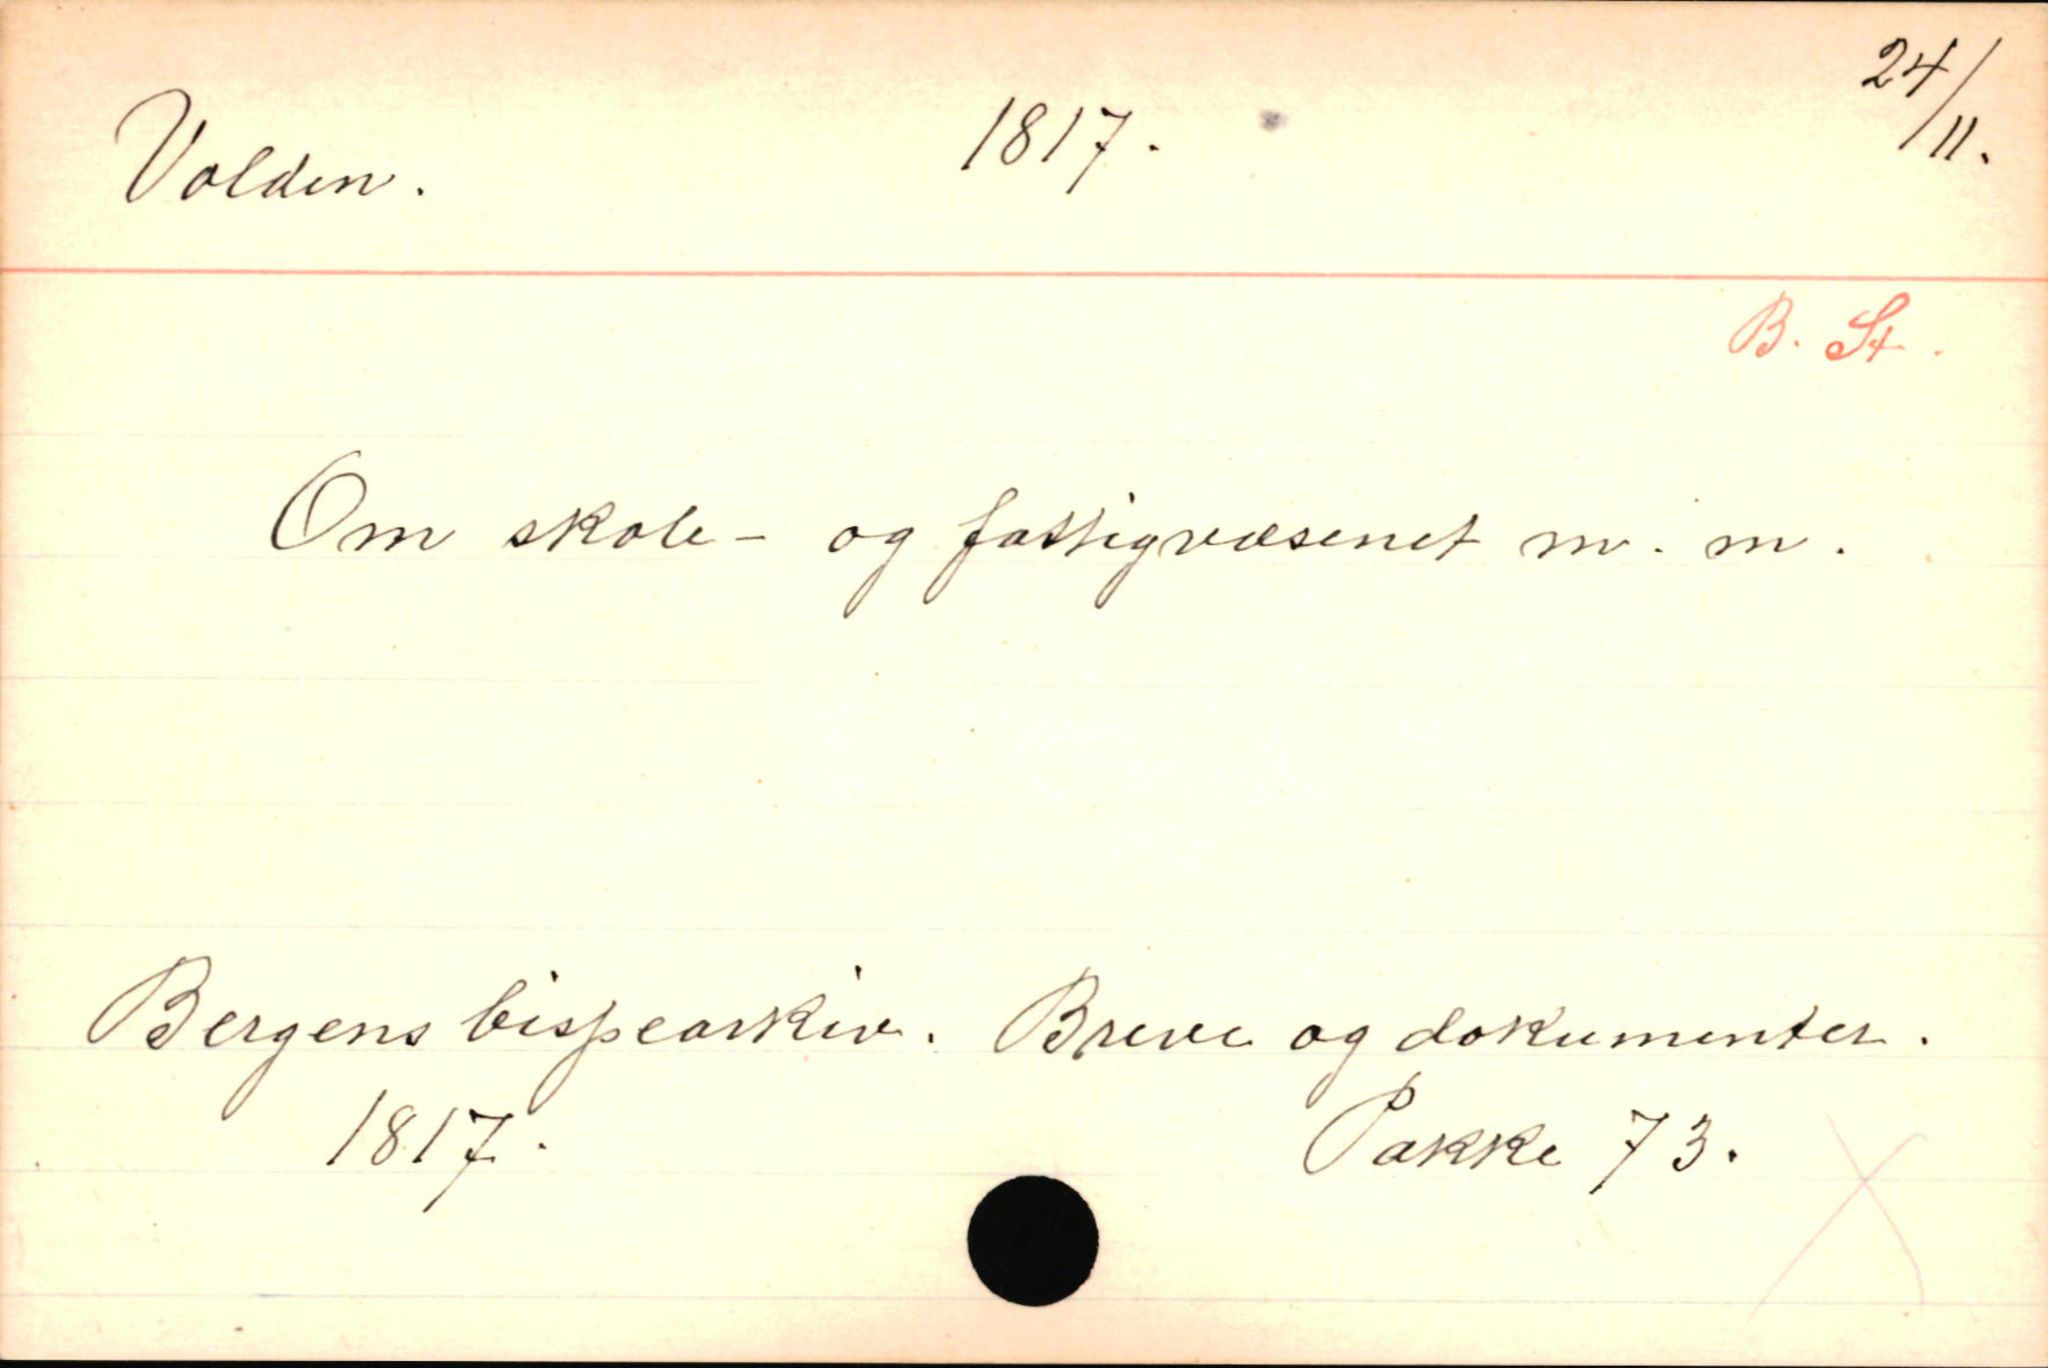 Volden. 1817. 24/11.
B. St.
Om skole- og fattigvæsenet m. m.
Bergens bispearkiv. Breve og dokumenter.
1817. Pakke 73.